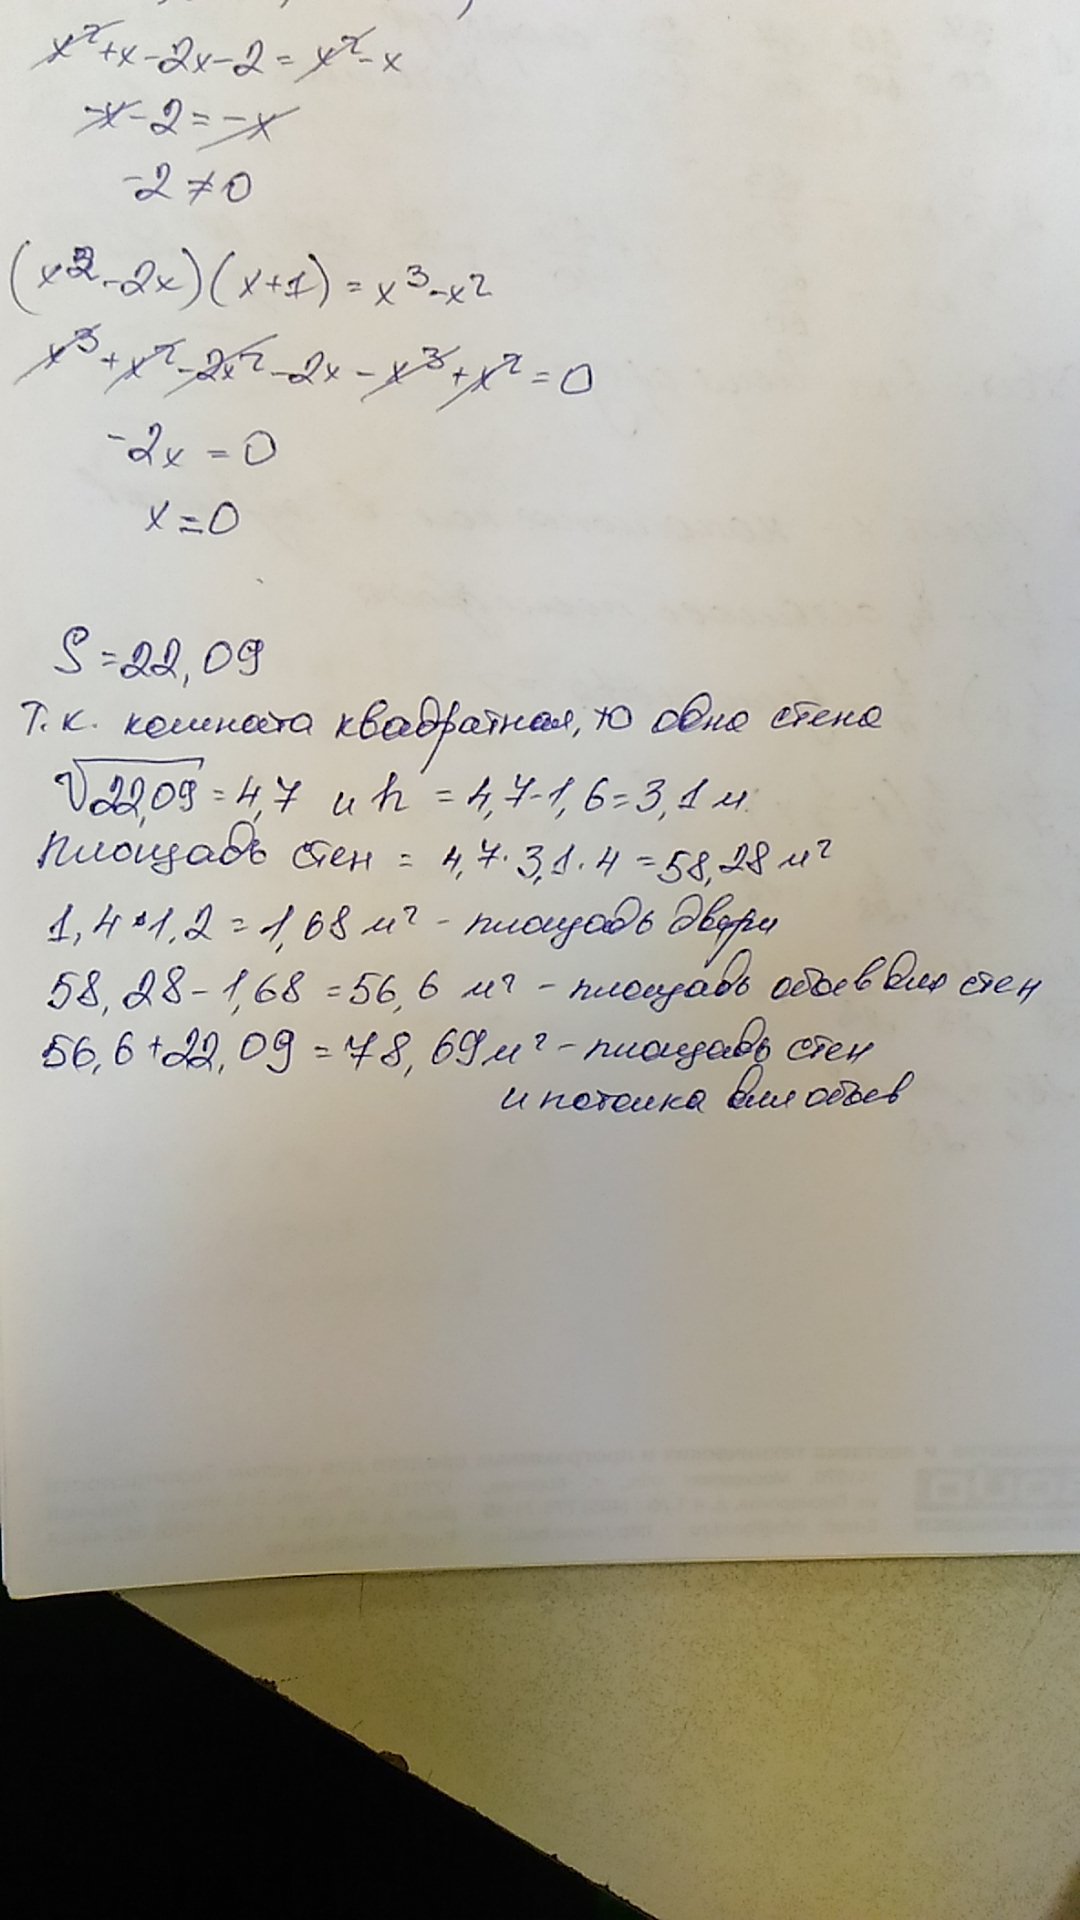 x²+x-2x-2=x²-x
-x-2=-x
-2≠0
(x²-2x)(x+1)=x³-x²
x³+x²-2x²-2x-x³+x²=0
-2x=0
x=0
S=22,09
Т.к. комната квадратная, то одна стена
√22,09=4,7 и h=4,7-1,6=3,1м
Площадь стен = 4,7·3,1·4=58,28м²
1,4·1,2=1,68м² - площадь двери
58,28-1,68=56,6 м² - площадь обоев для стен
56,6+22,09=78,69м² - площадь стен
и потолка для обоев